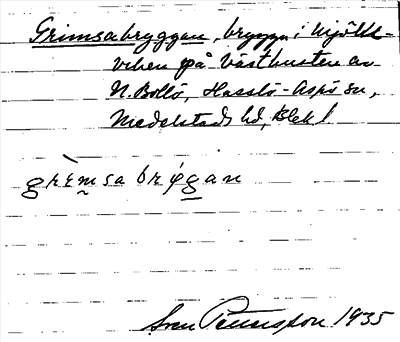 Grimsabryggan, brygga i Mjölk-
viken på västkusten av
N. Bollö, Hasslö-Aspö sn,
Medelstads hd, Blek l.
grìmsa brýgan
Sven Benson 1935